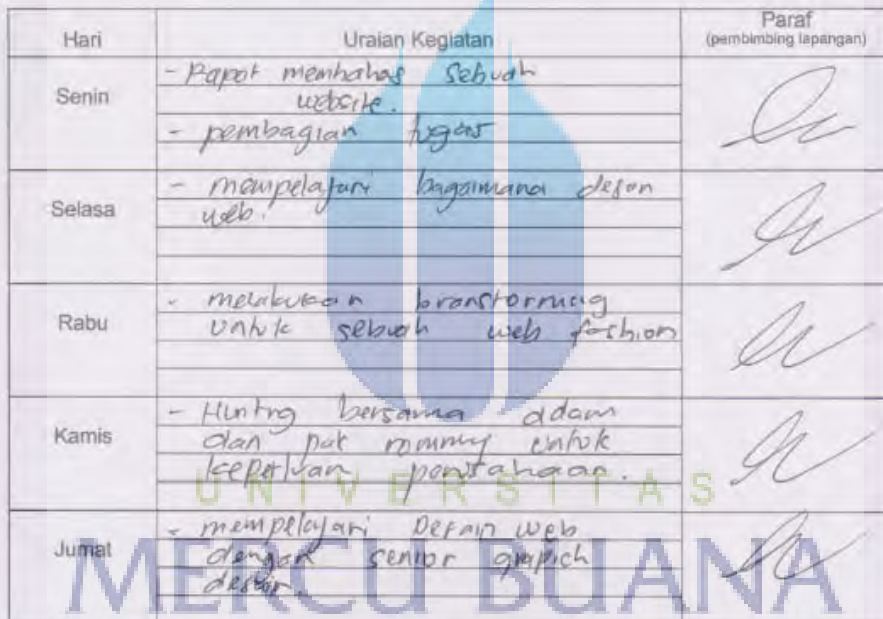 Hari Uraian Kegiatan Paraf
(pembimbing lapangan)
Senin
- Rapat membahas sebuah
website.
- pembagian tugas
Selasa
- mempelajari bagaimana desain
web.
Rabu
- melakukan branstorming
untuk sebuah web fashion
Kamis
- Hunting bersama adam
dan pak rommy untuk
keperluan perusahaan.
Jumat
- mempelajari Desain web
dengan senior grapich
desain.
UNIVERSITAS
MERCU BUANA